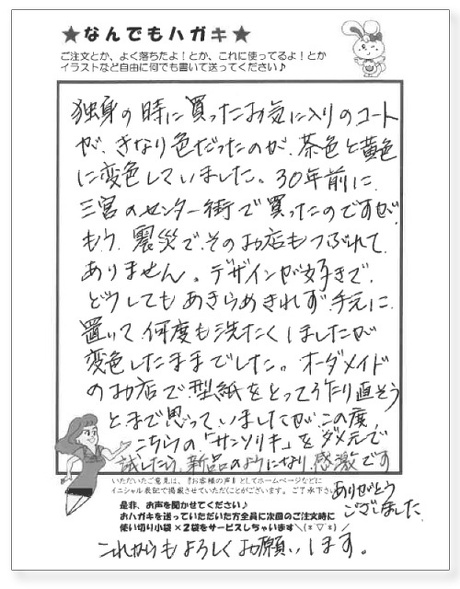 ★なんでもハガキ★
ご注文とか、よく落ちたよ！とか、これに使ってるよ！とか
イラストなど自由に何でも書いて送ってください♪
独身の時に買ったお気に入りのコート
が、きなり色だったのが、茶色と黄色
に変色していました。30年前に、
三宮のセンター街で買ったのですが、
もう、震災で、そのお店もつぶれて
ありません。デザインが好きで、
どうしてもあきらめきれず、手元に
置いて、何度も洗たくしましたが
変色したままでした。オーダメイド
のお店で、型紙をとって作り直そう
とまで思っていましたが、この度、
こちらの「サンソリキ」をダメ元で
試したら、新品のようになり、感激です
ありがとう
ございました、
いただいたご意見は、『お客様の声』としてホームページなどに
イニシャル表記で掲載させていただくことがございます。ご了承下さい
是非、お声を聞かせてください♪
おハガキを送っていただいた方全員に次回のご注文時に
使い切り小袋×2袋をサービスしちゃいます＼(≧▽≦)／
これからもよろしくお願いします。